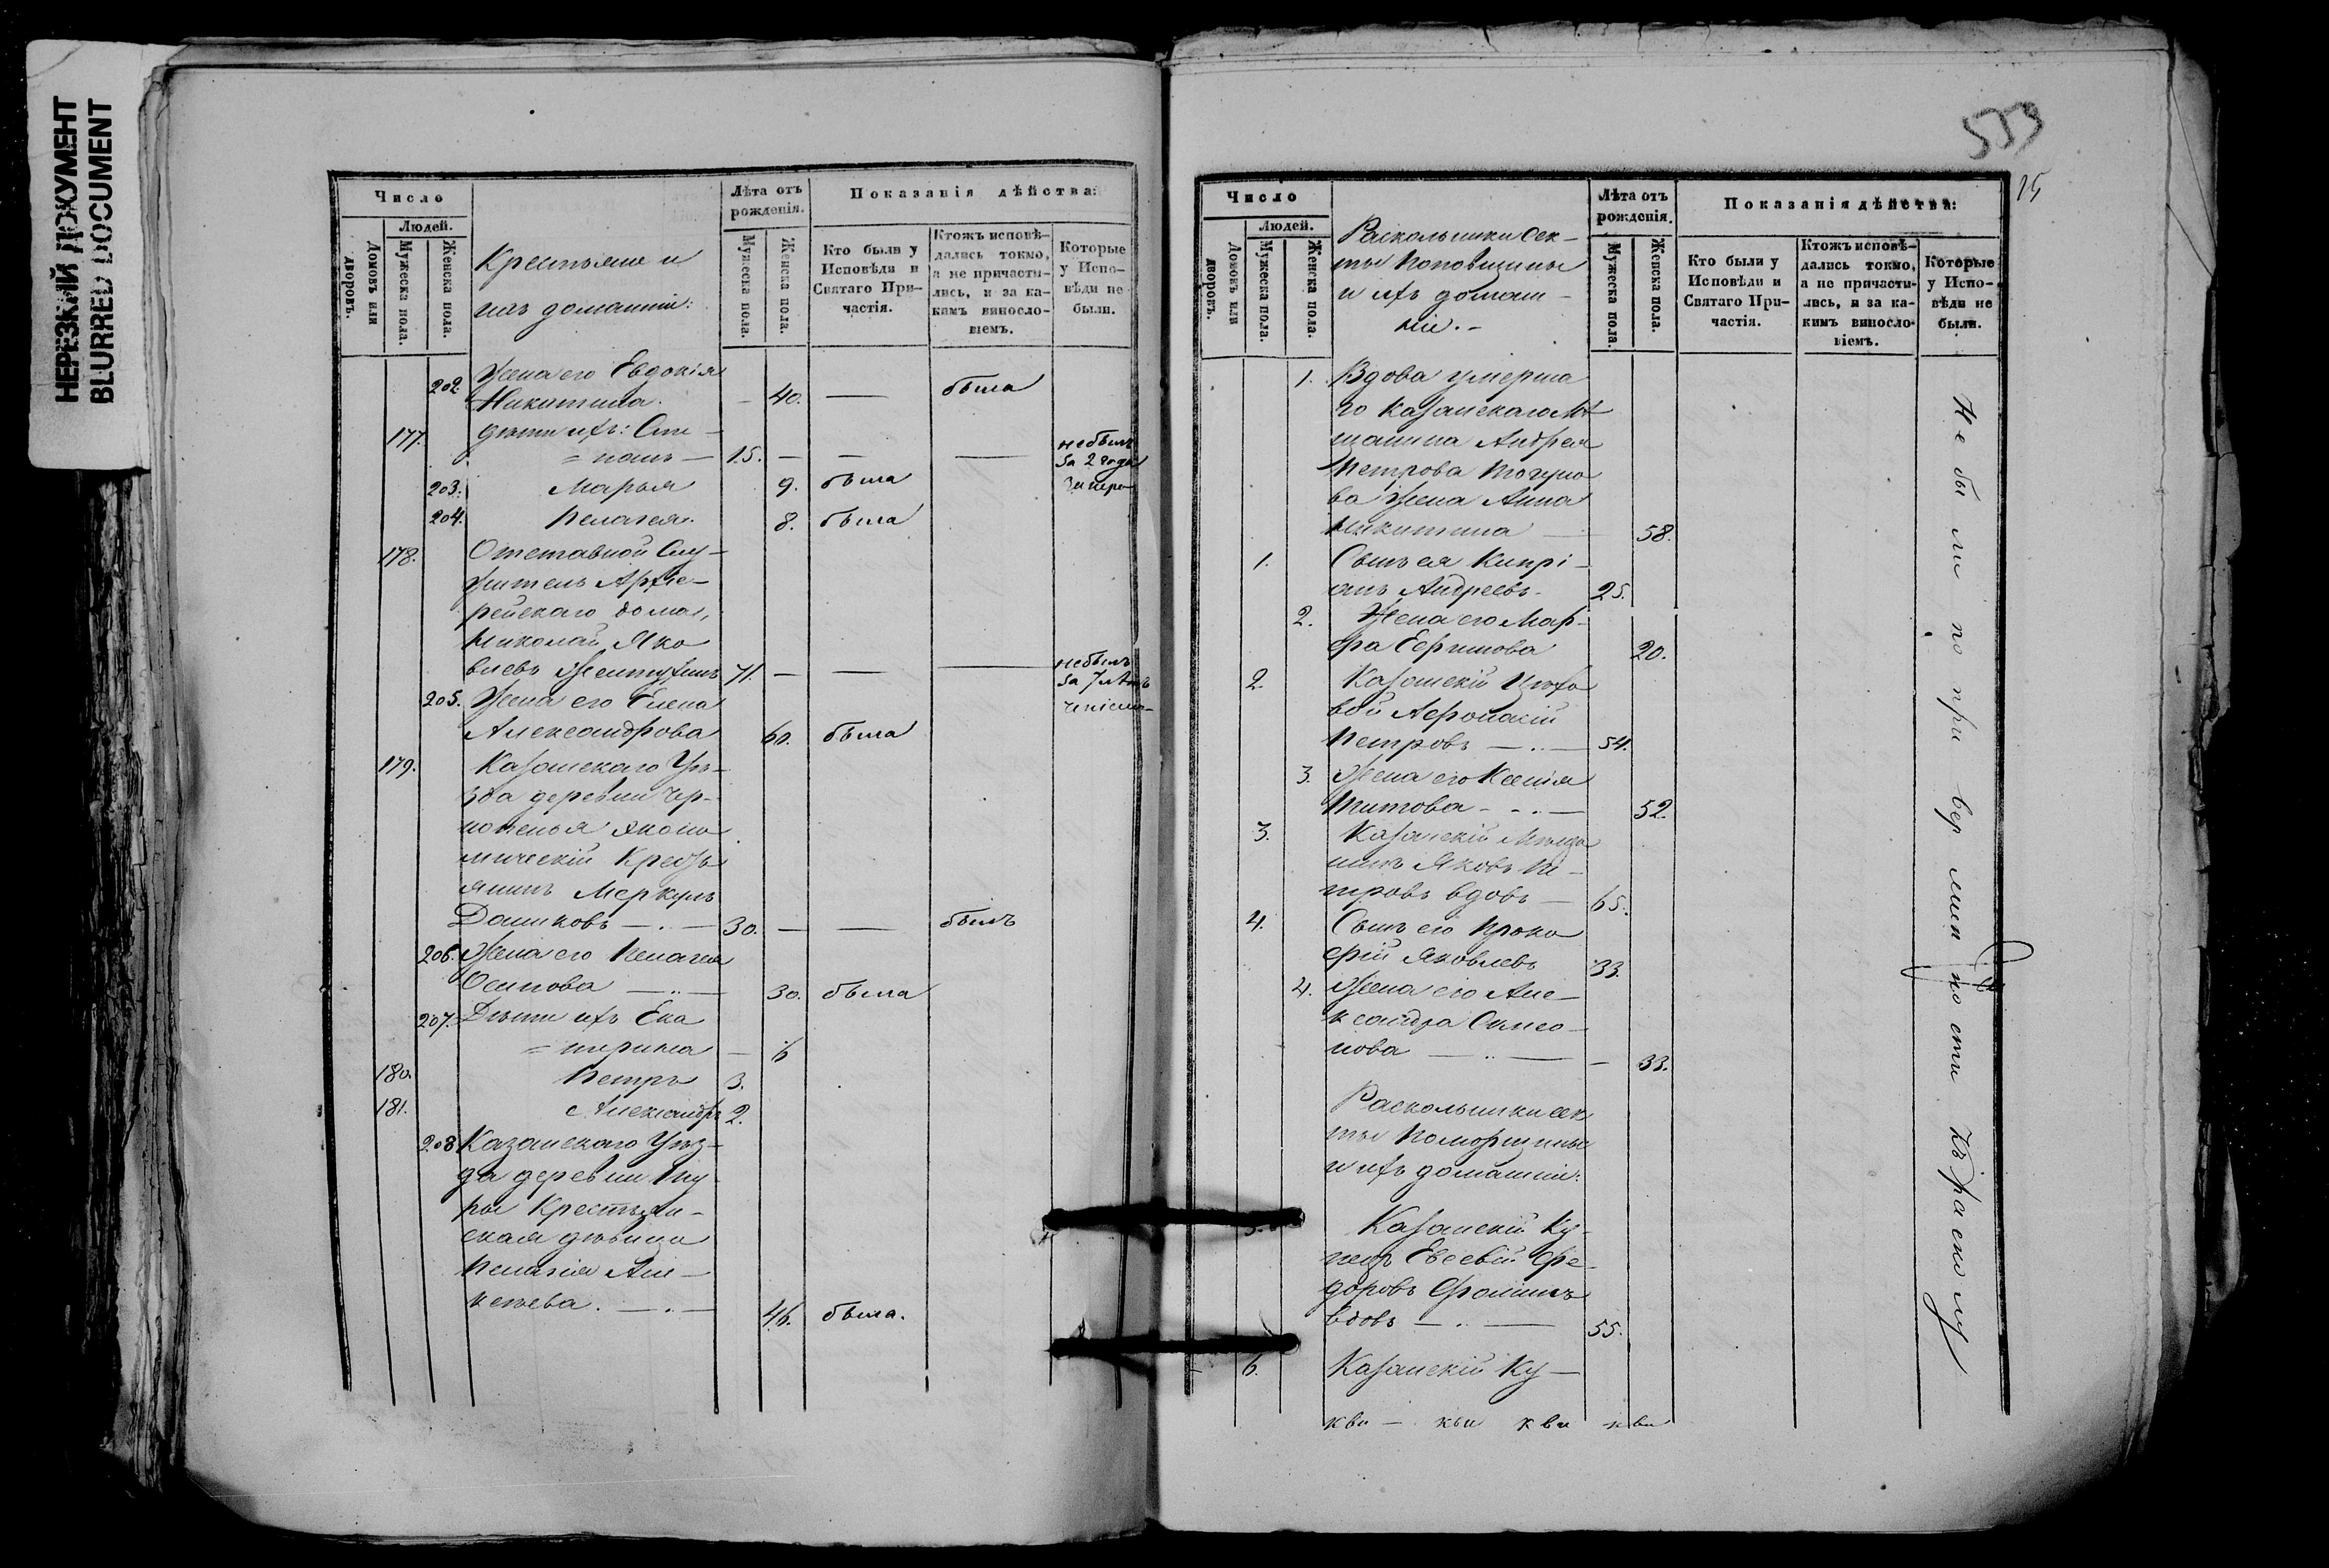 НЕРЕЗКИЙ ДОКУМЕНТ
BLURRED DOCUMENT
Число
Людей.
Домовъ или дворовъ.
Мужеска пола.
Женска пола.
Крестьяне и
ихъ домашніи:
Лѣта отъ рожденія.
Мужеска пола.
Женска пола.
Показанія дѣйства:
Кто были у Исповѣди и Святаго Причастія.
Ктожъ исповѣдались токмо, а не причастились, и за какимъ винословіемъ.
Которые у Исповѣди не были.
202. Жена его Евдокія
Никитина. — 40. — была
177. дѣти ихъ: Сте-
=панъ — 15. — — — небылъ
за 2 года
203. Марья 9. была
204. Пелагея. 8. была
178. Отставной Слу-
житель Архіе-
рейскаго дома,
Николай Яко
влевъ 71. — — — небылъ
за 7 лѣтъ
205. Жена его Елена
Александрова 60. была
179. Казанскаго Уѣ-
зда деревни Чер-
мическій Кресть
янинъ Меркулъ
Дашковъ — . — 30. — — былъ
206. Жена его Пелагея
Осипова — .. — 30. была
207. Дѣти ихъ Ека
=терина — 6
180. Петръ 3.
181. Александръ 2.
208 Казанскаго Уѣз-
да деревни
ры Крестьян-
ская дѣвица
Пелагія Але-
ксѣева. — . — 46. была.
533
15
Число
Людей.
Домовъ или дворовъ.
Мужеска пола.
Женска пола.
Раскольники Сек-
ты Поповщины
и ихъ домаш-
ніе. -
Лѣта отъ рожденія.
Мужеска пола.
Женска пола.
Показанія дѣйства:
Кто были у Исповѣди и Святаго Причастія.
Ктожъ исповѣдались токмо, а не причастились, и за какимъ винословіемъ.
Которые у Исповѣди не были.
1. Вдова умерша
го Казанскаго Мѣ
щанина Андрея
Петрова
ва Жена Анна
Никитина — 58.
1. Сынъ ея Кипрі-
анъ Андреевъ. 25.
2. Жена его Мар-
фа Ефимова 20.
2. Казанскій Цехо
вой Афонасій
Петровъ — .. — 54.
3. Жена его Ксенія
Титова - - .. — 52.
3. Казанскій Мѣща
нинъ Яковъ Пе-
тровъ вдовъ — 65.
4. Сынъ его Проко
фій Яковлевъ 33.
4. Жена его Але-
ксандра Симео-
нова — .. — — 33.
Раскольники сек
ты Поморщины
и ихъ домашніи:
5. Казанскій Ку-
пецъ Евсевій Фе-
доровъ Фоминъ
вдовъ — .. — 55.
6. Казанскій Ку —
Не были по приверженности къ расколу